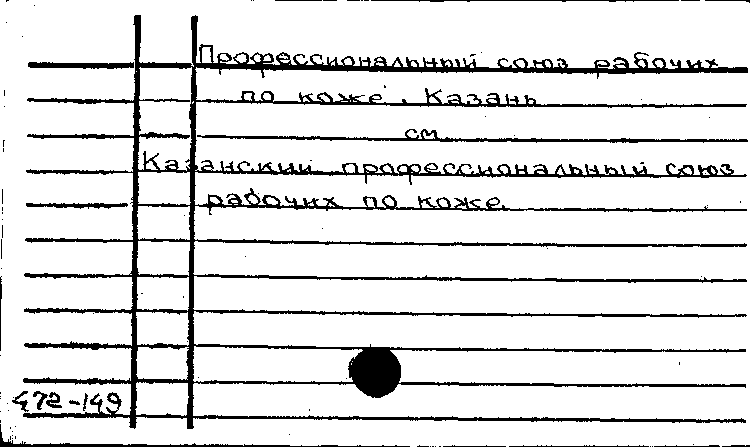 Профессиональный союз рабочих
по коже. Казань
см.
Казанский профессиональный союз
рабочих по коже.
472-149